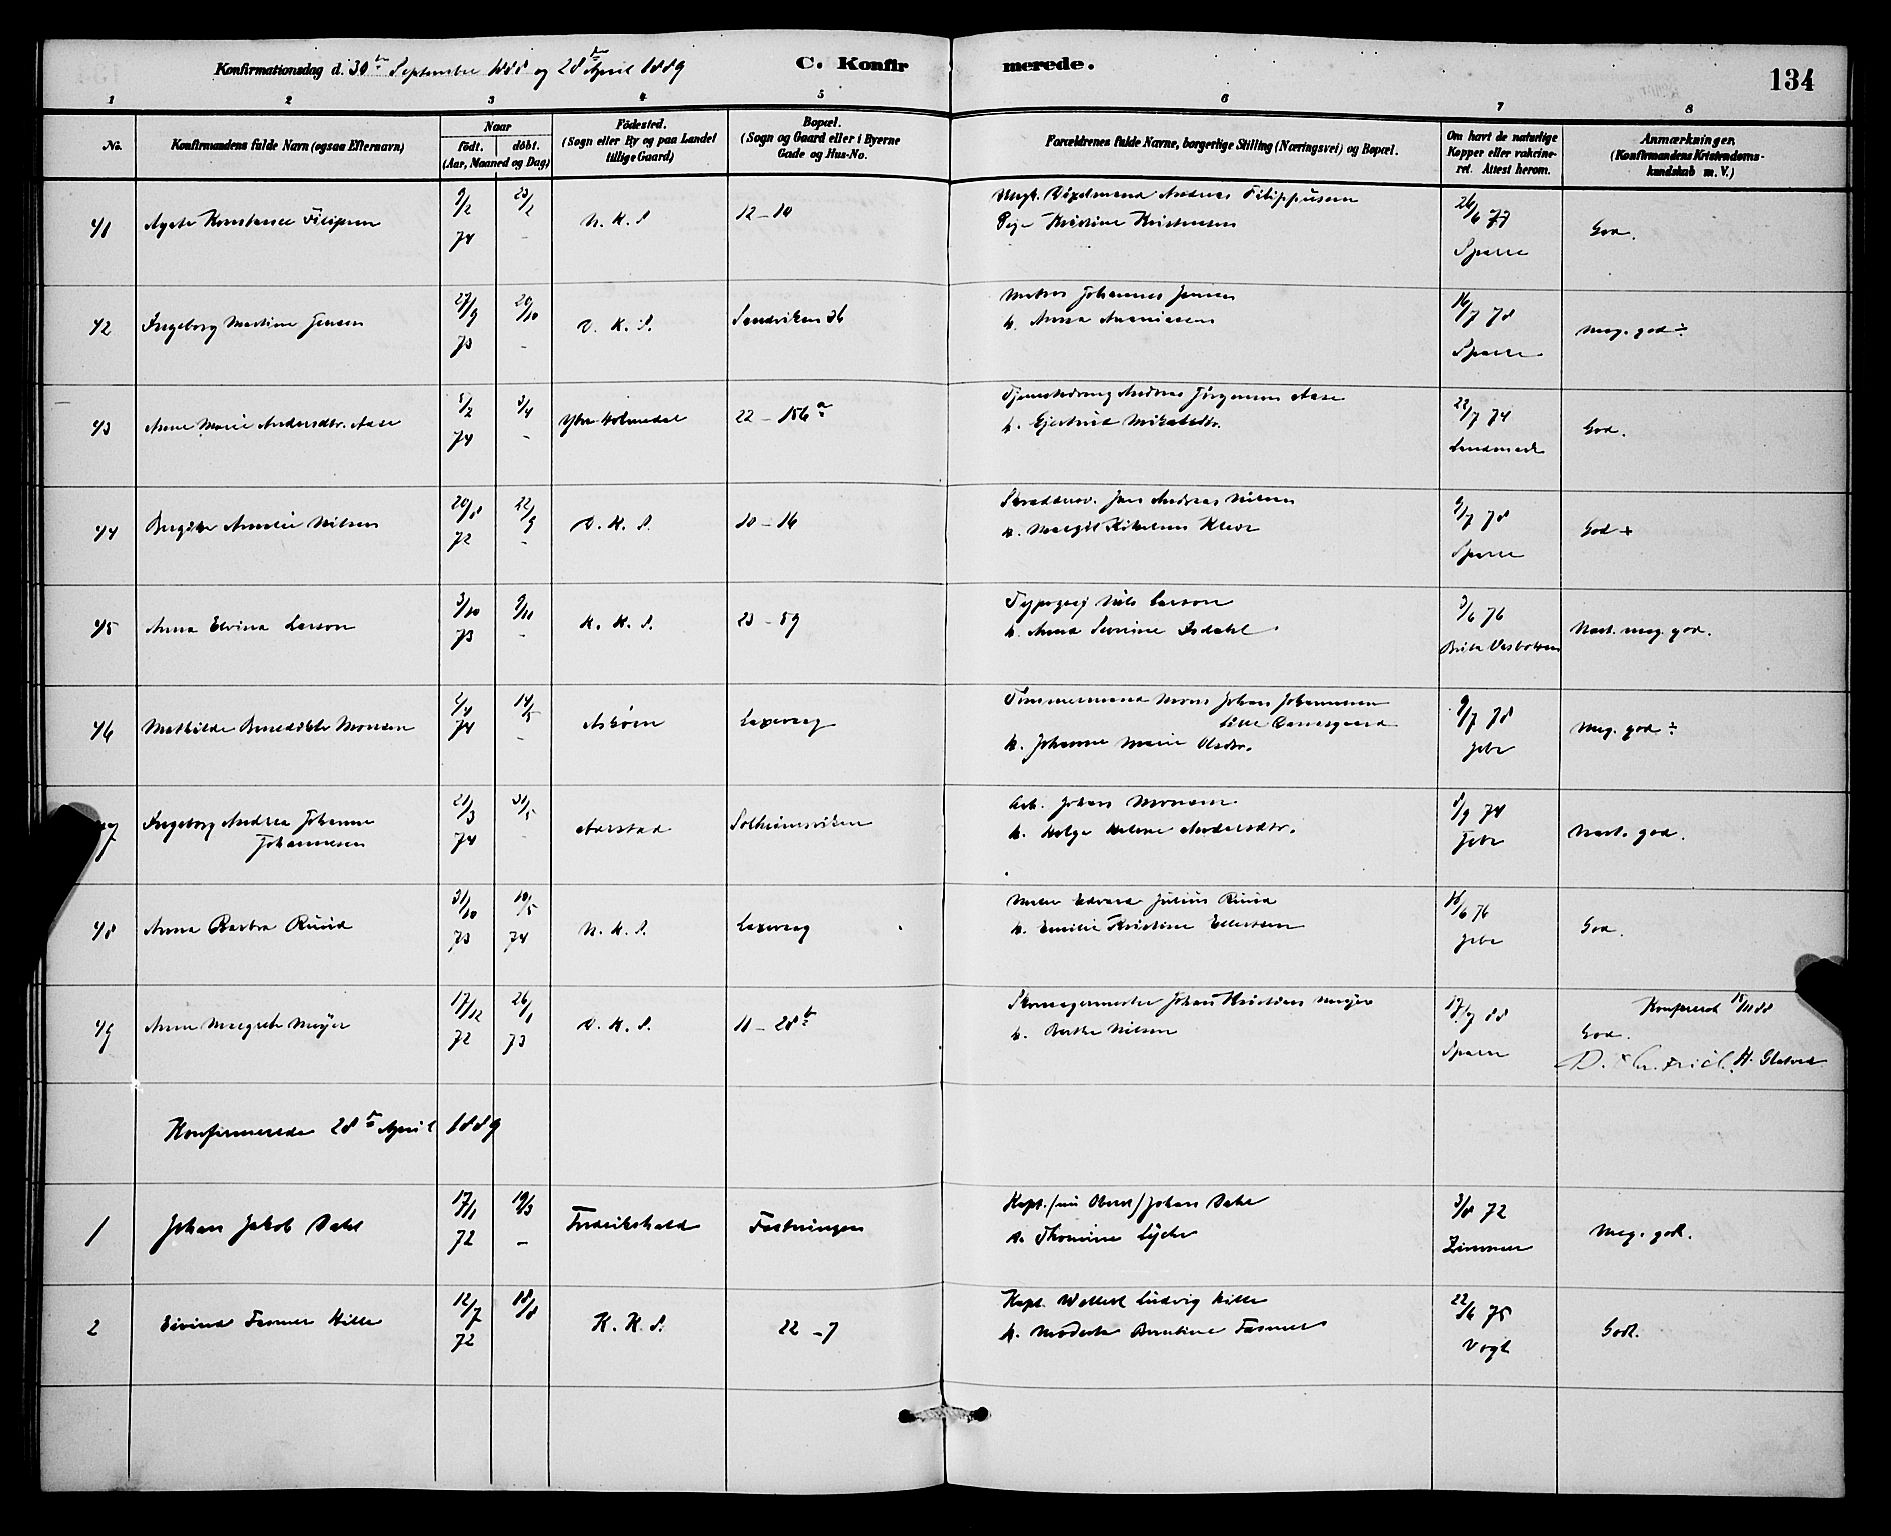 Konfirmationsdag d. 30te September 1888 og 28de April 1889
C. Konfirmerede.
134
1 2 3 4 5 6 7 8
No.
Konfirmandens fulde Navn (ogsaa Efternavn)
Naar
födt. döbt.
(Aar, Maaned og Dag)
Födested.
(Sogn eller By og paa Landet
tillige Gaard)
Bopæl.
(Sogn og Gaard eller i Byerne
Gade og Hus-No.
Forældrenes fulde Navne, borgerlige Stilling (Næringsvei) og Bopæl.
Om havt de naturlige
Kopper eller vakcine-
ret. Attest herom.
Anmærkninger.
(Konfirmandens Kristendoms-
kundskab m. V.)
41 Agate Konstanse Filipsen 9/2 74 23/2 - N. K. S. 12-10
Andreas Filippusen
Pige Kristine Kristensen
26/6 77
Sparre
God.
42 Ingeborg Martine Jensen 27/9 73 20/10 - D. K. S. Sandviken 36
Matros Johannes Jensen
h. Anna Ananiasen
16/7 78
Sparre
Meg. god ÷
43 Anne Marie Andersdtr. Aase 5/2 74 3/4 - Ytre Holmedal 22-156a
Tjenestedreng Andreas Jörgensen Aase
h. Gjertrud Mikalsdtr.
22/7 74
Landmark
God.
44 Birgitte Amalie Nilsen 20/8 72 22/9 - D. K. S. 10-16
Jens Andreas Nilsen
9/7 78
Sparre
God +
45 Anna Elvina Larson 3/10 73 9/11 - K. K. S. 23-59
Typograf Nils Larson
h. Anna Severine Isdahl
3/6 76
Nært. meg. god.
46 Mathilde Benedikte Monsen 2/4 74 14/5 - Asköen Laxevaag
Tømmermand Mons Johan Johannesen
Lille Damsgaard
h. Johanne Marie Olsdtr.
9/7 78
Jebe
Meg. god ÷
47 Ingeborg Andrea Johanne
Johannesen 21/3 74 31/5 - Aarstad Solheimsviken
Arb. Johan Monsen
h. Helga Helene Andersdtr.
8/9 74
Jebe
Nært. god.
48 Anna Barbra Ruud 31/10 73 10/5 74 N. K. S. Laxevaag
Maler Edvard Julius Ruud
h. Emilie Kristine Ellertsen
15/6 76
Jebe
God.
49 Anne Margrete Meyer 17/12 72 26/1 73 D. K. S. 11-28b
Skomagermester Johan Kristian Meyer
h. Berthe Nilsen
17/9 88
Sparre
Konfirmeret 18/11 88
God.
Konfirmerede 28de April 1889
1 Johan Jakob Dahl 17/1 72 19/3 - Fredrikshald Fæstningen
Kapt. (nu Oberst) Johan Dahl
h. Thomine Lyche
3/8 72
Zimmer
Meg. god.
2 Eivind Fasmer Hille 12/7 72 18/8 K. K. S. 22-7
Kapt. Wollert Ludvig Hille
h. Modesta Berntine Fasmer
22/6 75
Vogt
God.